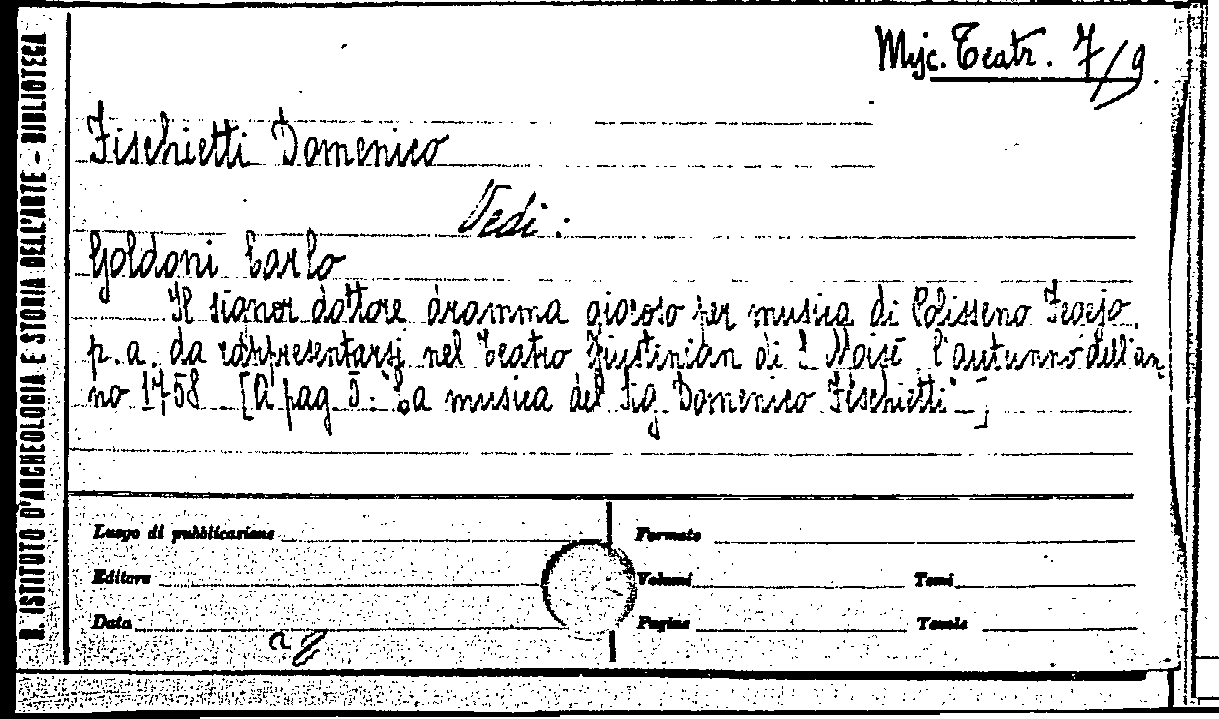 R. ISTITUTO D'ARCHEOLOGIA E STORIA DELL'ARTE - BIBLIOTECA
Misc. Teatr. 7/9
Fischietti Domenico
Vedi:
Goldoni Carlo
Il signor dottore dramma giocoso per musica di Polisseno Fegejo
p. a. da rappresentarsi nel Teatro Giustinian di S. Moisè l'autunno dell'an
no 1758 [A pag 5: "La musica del Sig Domenico Fischietti"]
Luogo di pubblicazione
Formato
Editore
Volumi
Tomi
Data
Pagine
Tavole